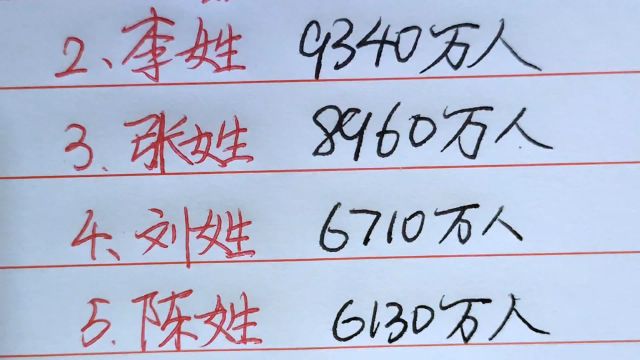 2、李姓 9340万人
3.张姓 8960万人
4、刘姓 6710万人
5.陈姓 6130万人